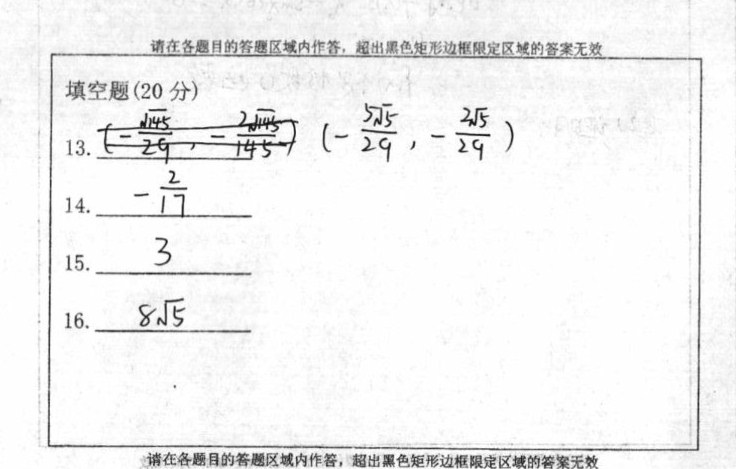 请在各题目的答题区域内作答，超出黑色矩形边框限定区域的答案无效
填空题(20 分)
13. (-√145/29, -2√145/145) (-5√5/29, -2√5/29)
14. -2/17
15. 3
16. 8√5
请在各题目的答题区域内作答，超出黑色矩形边框限定区域的答案无效